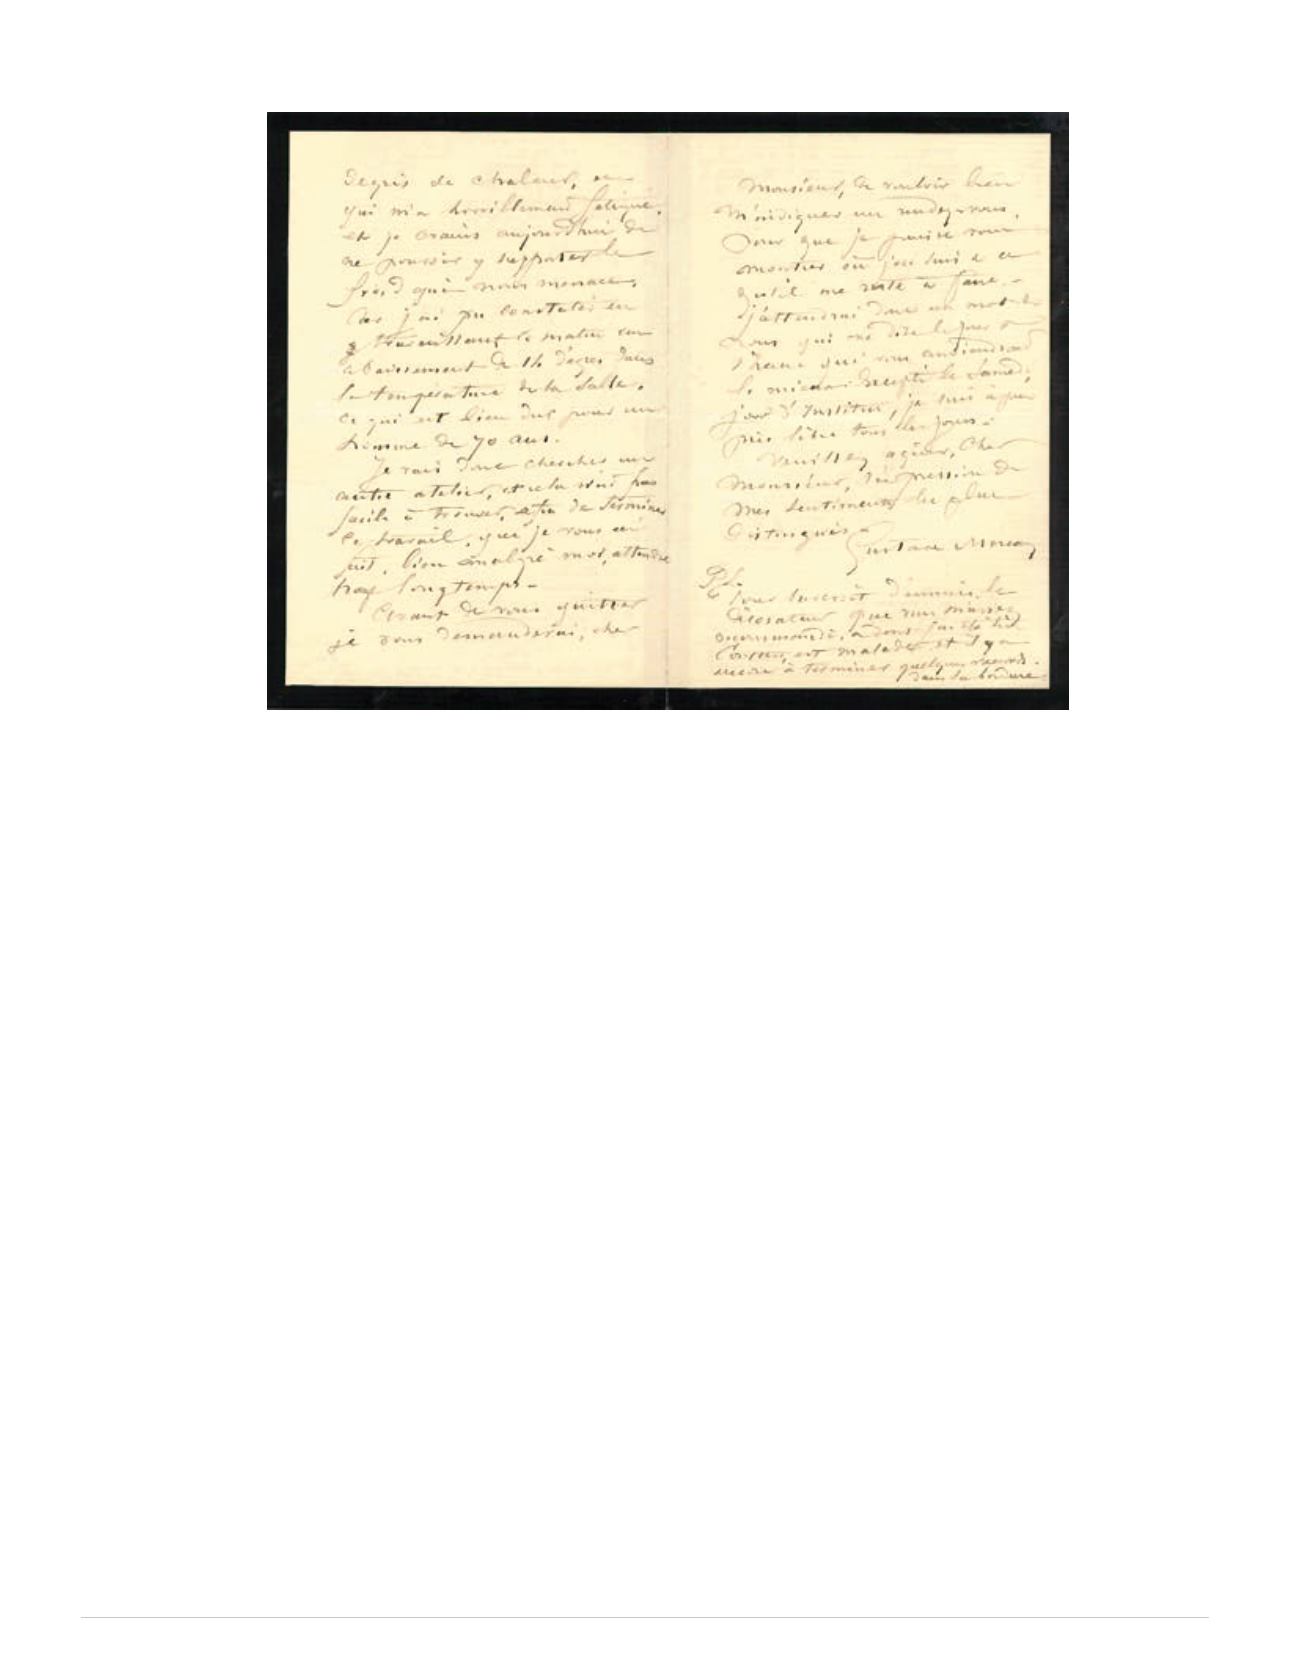 degrés de chaleur, ce
qui m'a horriblement fatigué,
et je crains aujourd'hui de
ne pouvoir y supporter le
froid qui nous menace,
car j'ai pu constater en
y travaillant le matin un
abaissement de 14 degrés dans
la température de la salle,
ce qui est bien dur pour un
homme de 70 ans.
Je vais donc chercher un
autre atelier, et cela n'est pas
facile à trouver, afin de terminer
ce travail, que je vous ai
fait, bien malgré moi, attendre
trop longtemps -
Avant de vous quitter
je vous demanderai, cher
Monsieur, de vouloir bien
m'indiquer un rendez-vous,
pour que je puisse vous
montrer où j'en suis & ce
qu'il me reste à faire. -
J'attendrai donc un mot de
vous qui me dise le jour &
l'heure qui vous conviendront
le mieux. Excepté le Samedi,
jour d'Institut, je suis à peu
près libre tous les jours -
Veuillez agréer, Cher
Monsieur, l'expression de
mes sentiments les plus
distingués -
Gustave Moreau
P.S.
Pour surcroît d'ennuis, le
décorateur que vous m'aviez
recommandé, & dont j'ai été très
content, est malade, et il y a
encore à terminer quelques raccords
dans la bordure.